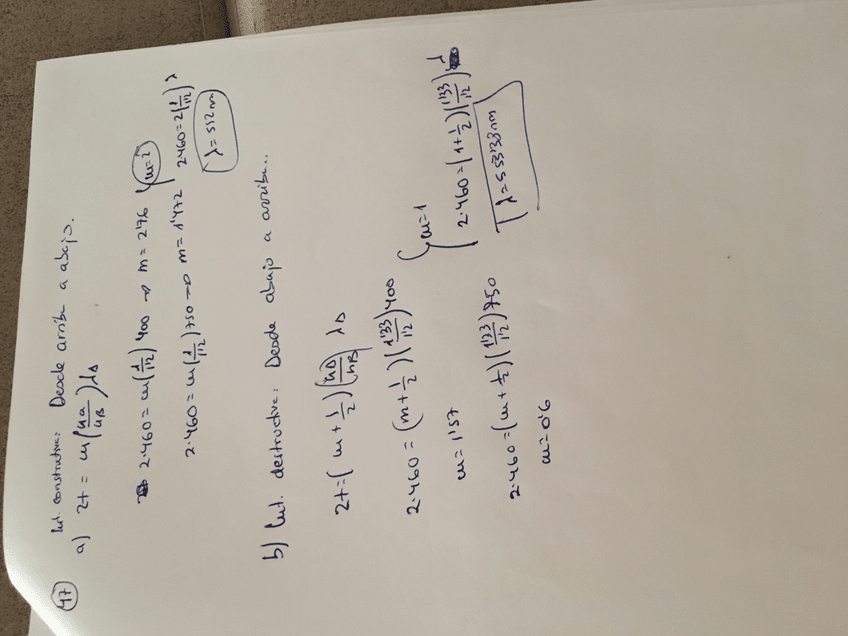 47 Int. constructiva: Desde arriba a abajo.
a) 2t = m(na/nB)λa
2·460 = m(1/1'2) 400 → m = 2'76 {m=2
2·460 = m(1/1'2) 750 → m = 1'472 2·460 = 2(1/1'2)λ
λ = 552 nm
b) Int. destructiva: Desde abajo a arriba...
2t = (m + 1/2)(nD/nB) λD
2·460 = (m + 1/2)(1'33/1'2) 400
m = 1'57
2·460 = (m + 1/2)(1'33/1'2) 750
m = 0'6
{m=1
2·460 = (1 + 1/2)(1'33/1'2) λ
λ = 553'38 nm